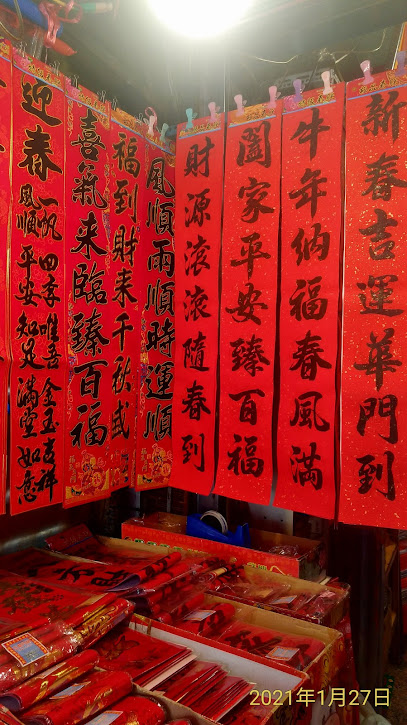 新春吉運華門到
牛年納福春風滿
闔家平安臻百福
財源滾滾隨春到
風順雨順時運順
福到財來千秋
喜氣來臨臻百福
迎春
一帆風順
四季平安
唯吾知足
金玉滿堂
吉祥如意
2021年1月27日